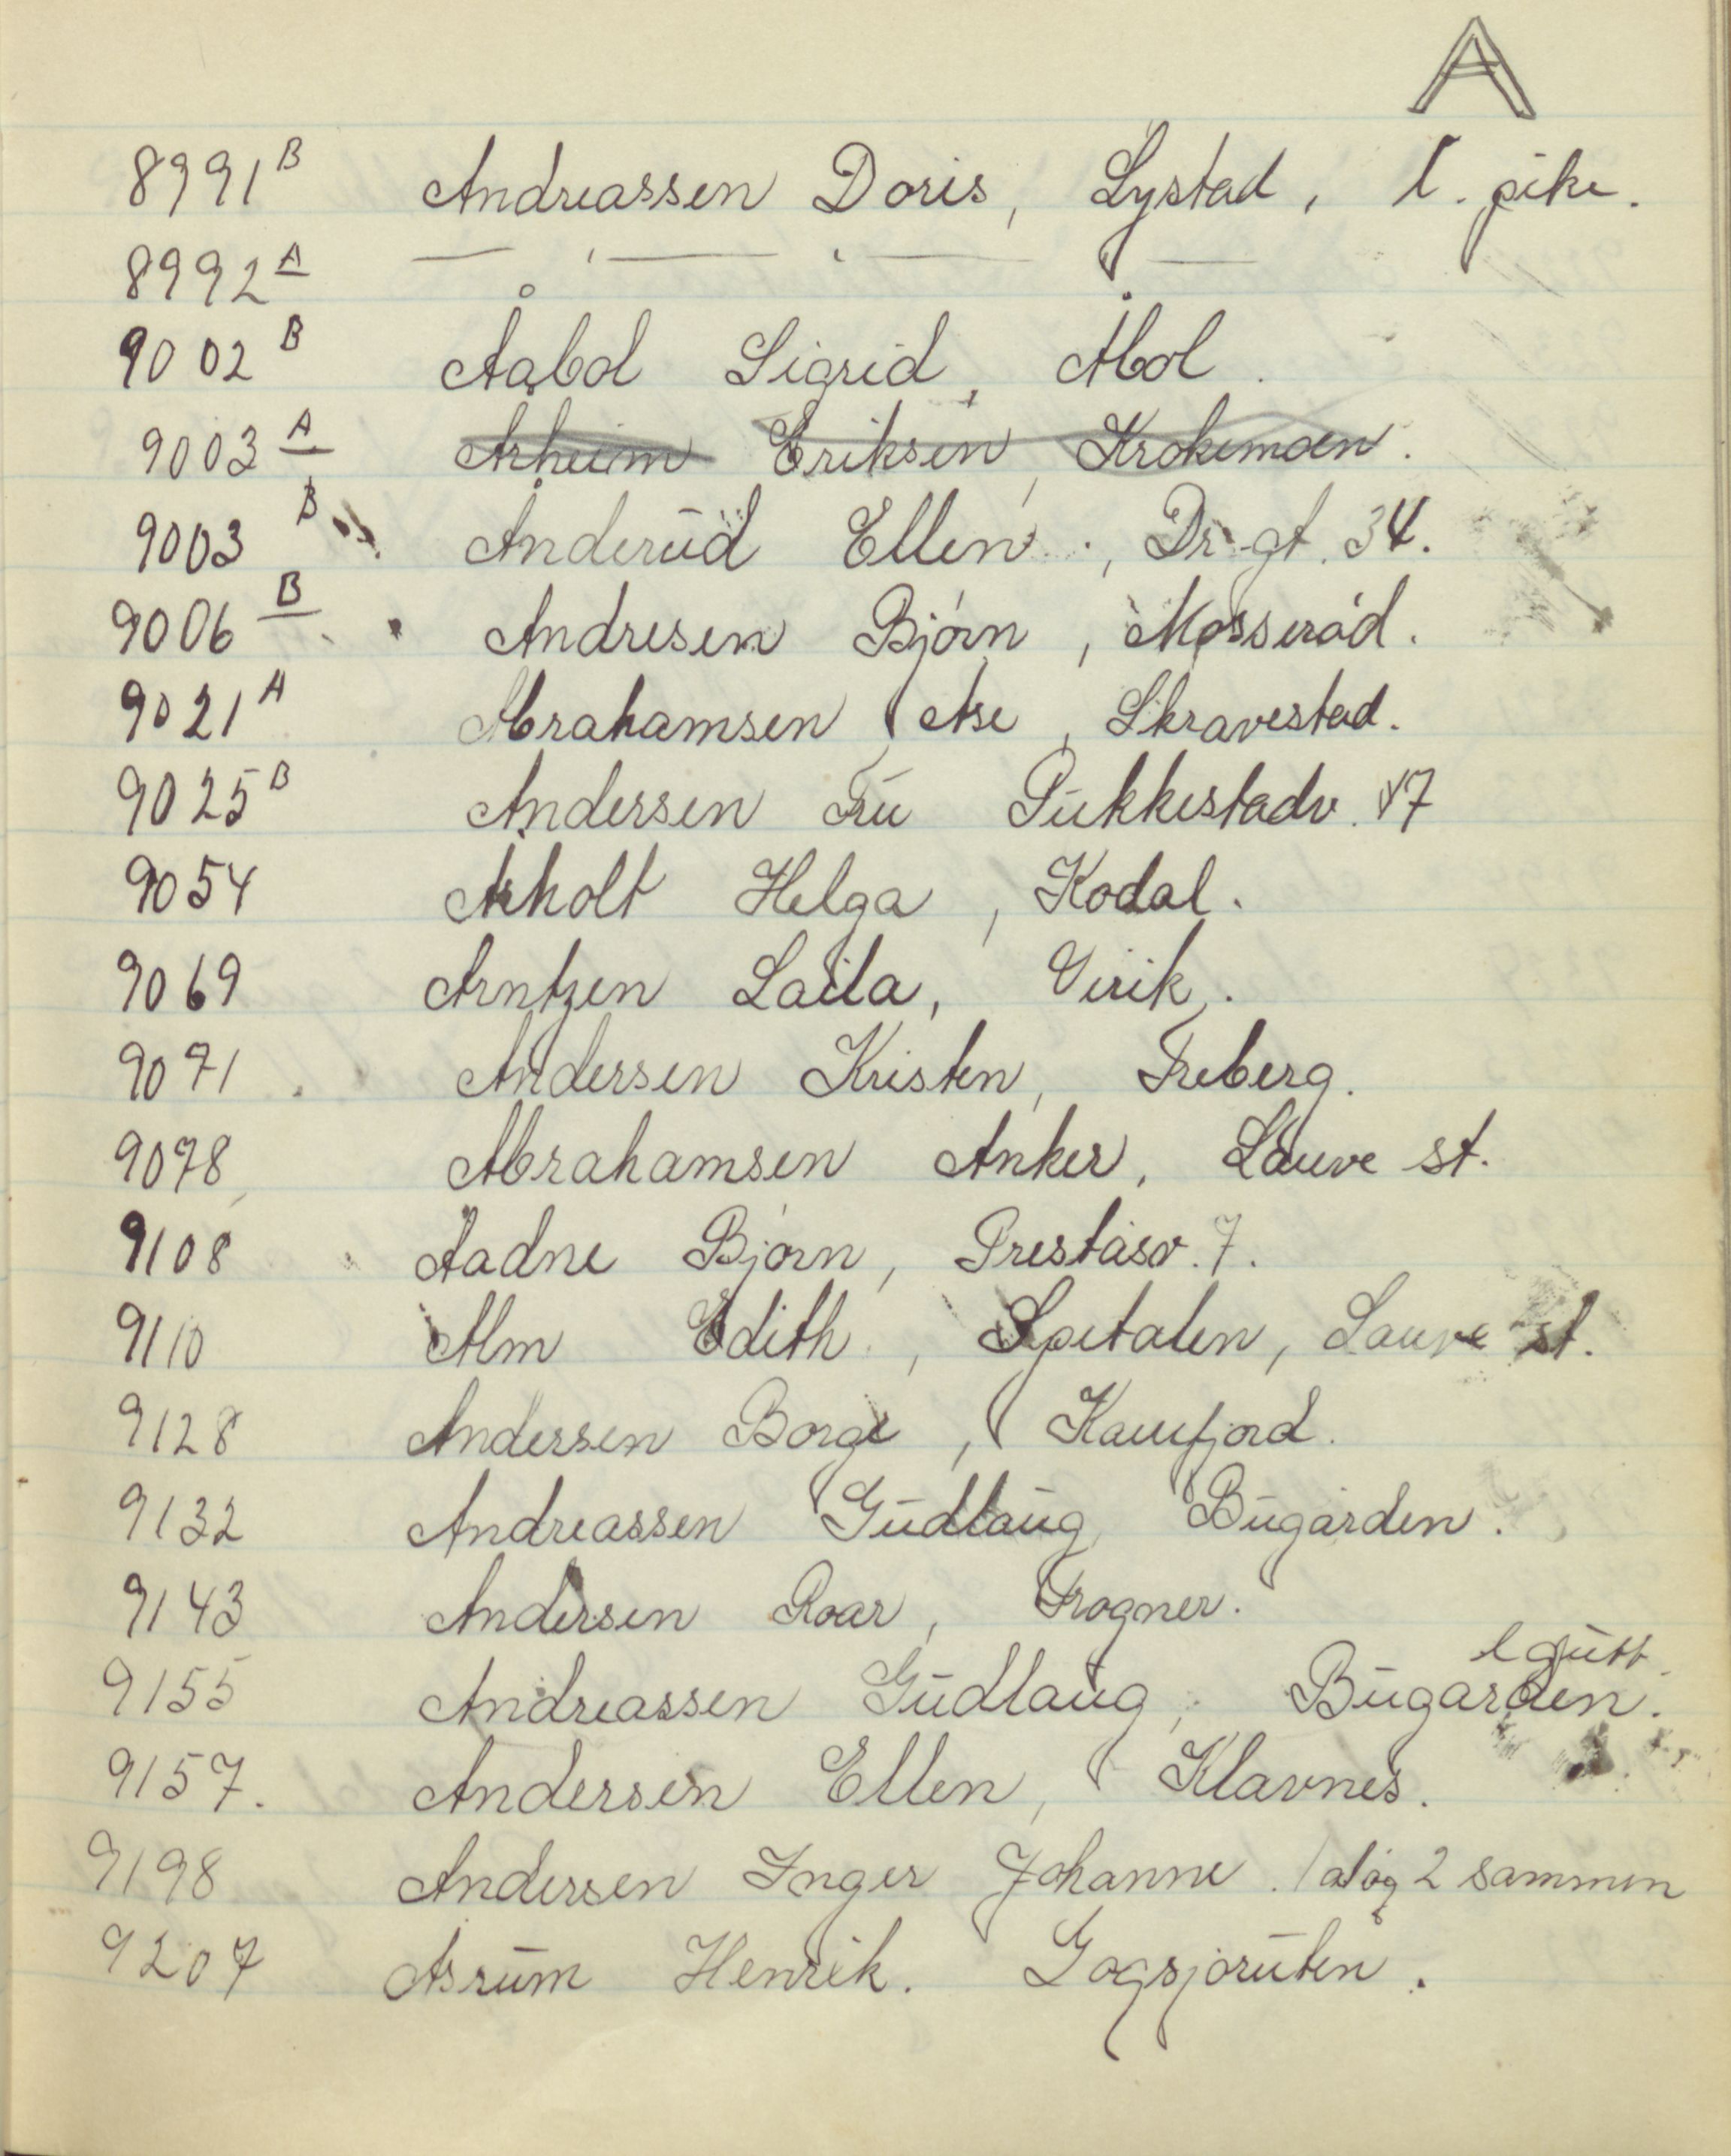 A
8991 B Andreassen Doris, Lystad, l. pike.
8992 A — ' — ' — " —
9002 B Åabol Sigrid, Åbol.
9003 A Arheim Eriksen, Krokemoen.
9003 B Anderud Ellen, Dr. gt. 34.
9006 B Andresen Bjørn, Mosserød.
9021 A Abrahamsen Åse, Skravestad.
9025 B Andersen Fru Pukkestadv. 17
9054 Arholt Helga, Kodal.
9069 Arntzen Laila, Virik.
9071 Andersen Kristen, Freberg.
9078 Abrahamsen Anker, Lauve st.
9108 Aadne Bjørn, Preståsv. 7.
9110 Alm Edith, Spetalen, Lauve st.
9128 Andersen Borge, Kamfjord.
9132 Andreassen Gudlaug, Bugården.
9143 Andersen Roar, Frogner.
l gutt.
9155 Andreassen Gudlaug, Bugården.
9157. Andersen Ellen, Klavnes.
9198 Andersen Inger Johanne. 1 og 2 sammen
9207 Asrum Henrik. Gogsjøruten.